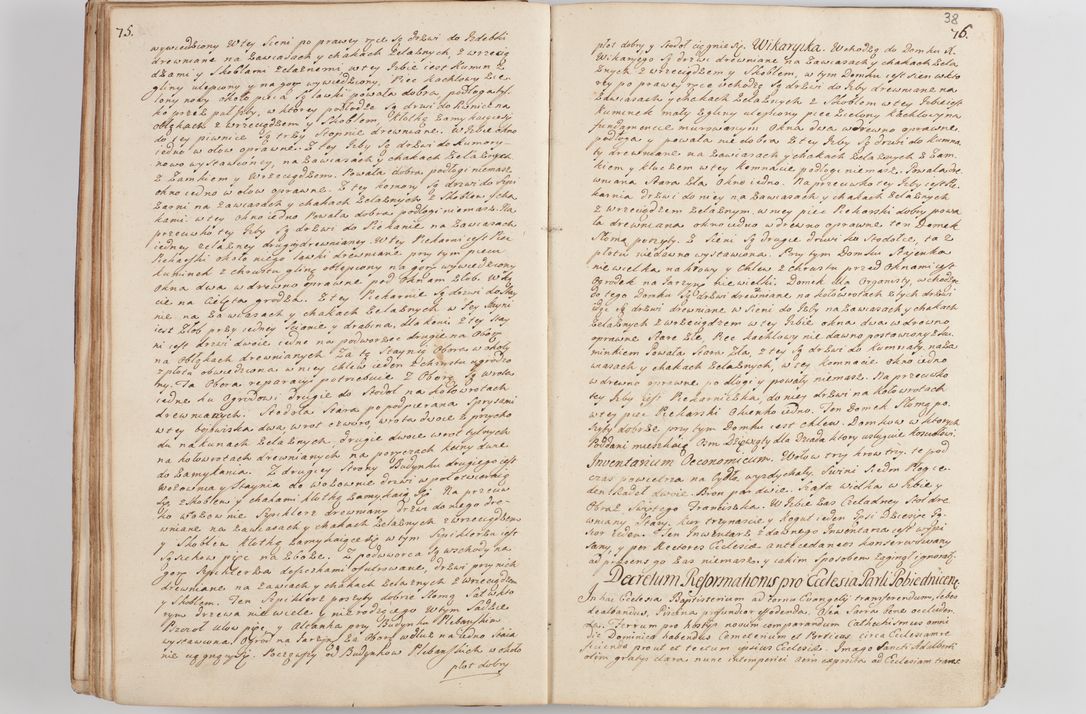 75.
wywiedziony. W tey Sieni po prawey ręce są drzwi do Izdebki
drewniane na zawiasach y hakach żelaznych z wrzecią-
dzami y skoblami żelaznemi w tey Izbie iest kumin z
gliny ulepiony y na górę wywiedziony. Piec kachlowy zie-
lony nowy około pieca ławki powała dobra podłoga tyl-
ko przez puł Izby, w ktorey podłodze są drzwi do Piwnice na
z wrzeciądzem y skoblem, klotką zamykaiące się
do tey piwnice są trzy stopnie drewniane. W Izbie okno
iedno w ołow oprawne. Z tey Izby są drzwi do kumory
nowo wystawioney, na zawiasach y hakach żelaznych
z zamkiem y wrzeciądzem. Powała dobra podłogi niemasz
okno iedno w ołow oprawne. Z tey komory są drzwi do Spi
żarni na zawiasach y hakach żelaznych z skoblem, y ha
kami w tey okno iedno powała dobra podłogi niemasz. Na
przeciwko tey Izby są drzwi do Piekarnie na zawiasach
iedney żelazney drugiey drewnianey. W tey Piekarni iest Piec
Piekarski około niego ławki drewniane przy tym piecu
kuminek z chrustu gliną oblepiony na górę wywiedziony
okna dwa w drewno oprawne pod oknam żłob. W ką
cie na Cielęta grodza. Z tey Piekarnie są drzwi do Stay
nie na zawiasach y hakach żelaznych w tey Stayni
iest żłob przy iedney ścianie y drabina, dla koni. Z tey Stay
ni są drzwi dwoie iedne na podworzec drugie na Oborę
na drewnianych. Za tą Staynią Obora w około
z płotu obwiedziona w niey chlew ieden z chrustu ugrodzo
ny. Ta Obora reparacyi potrzebuie z Obory są wrota
iedne ku Ogrodowi drugie do Stodoł na kołowrotach
drewnianych. Stodoła stara popodpierana sprysami
w tey boiowiska dwa, wrot czworo, wrota dwoie z przycho
du na kunach żelaznych, drugie dwoie wrot tylnych
na kołowrotach drewnianych na poprzecz kuny dane
do zamykania. Z drugiey strony Budynku drugiego iest
Wozownia y Staynia do wozownie drzwi
są z skoblem y hakami klotką zamykaią się. Na przeciw
ko wozownie Szpichlerz drewniany drzwi do niego dre
wniane na zawiasach y hakach żelaznych z wrzeciądzem
y skoblem klotką zamykaiące się w tym Szpichlerzu iest
sąsiekow pięc na zboże. Z podworca są wschody na
gorę Szpichlerza deszczkami drzwi przy nich
drewniane na zawiach y hakach żelaznych z wrzeciądzem
y skoblem. Ten Szpichlerz poszyty dobrze słomą. Sad w kto
rym drzewa nie wiele y nierodzącego w tym Sadzie
Pszczoł ulow pięc, y Altanka przy Budynku Plebańskim
wystawiona. Ogrod na Jarzyny za Oborą wdłuż na iedno staia
nie uo. Począwszy od Budynkow Plebańskich w około
płot dobry
38
76.
płot dobry y stodoł ciągnie się. Wikaryika. Wchodząc do Domku X.
Wikaryego są drzwi drewniane na zawiasach y hakach żela
znych z wrzeciądzem y skoblem, w tym Domku iest sien w kto
rey po prawey ręce wchodzą są drzwi do Izby drewniane na
zawiasach y hakach żelaznych z skoblem w tey Izbie iest
kuminek mały z gliny ulepiony piec zielony kachlowy na
fundamencie murowanym okna dwa w drewno oprawne
podłoga y powała nie dobra z tey Izby są drzwi do kumna
ty drewniane na zawiasach y hakach żelaznych z zam
kiem y kluczem w tey komnacie podłogi niemasz. Powała dre
wniana stara zła okno iedno. Na przeciwko tey Izby iest Pie
karnia drzwi do niey na zawiasach y hakach żelaznych
z wrzeciądzem żelaznym. w niey piec Piekarski dobry powa
ła drewniana okno iedno w drewno oprawne ten Domek
słomą poszyty. Z Sieni są drugie drzwi ku Stodolce, ta z
płotu niedawno wystawiona. Przy tym Domku Stajenka
niewielka na krowy y chlew z chrustu przed oknami iest
Ogrodek na Jarzyny niewielki. Domek dla Organisty, wchodząc
do tego Domku są drzwi drewniane na kołowrotach z tych drzwi
idą są drzwi drewniane w Sieni do Izby na zawiasach y hakach
żelaznych z wrzeciądzem w tey Izbie okna dwa w drewno
oprawne stare złe, Piec kachlowy nie dawno postawiony z ku
minkiem Powała stara zła, z tey są drzwi do kumnaty na za
wiasach y hakach żelaznych, w tey komnacie okno iedno
w drewno oprawne podłogi y powały niemasz. Na przeciwko
tey Izby iest Piekarniczka, do niey drzwi na kołowrotach
w tey piec Piekarski okienko iedno. Ten Domek słomą po
szyty dobrze przy tym Domku iest chlew. Domkow w ktorych
Poddani mieszkaią Dziewiąty dla Dziada ktory usługuie kosciołowi.
Inventarium Oeconomicum. Wołow trzy krow trzy, te pod
czas powietrza na bydło, wyzdychały, Swini siedm Pług ie-
den Radeł dwoie. Bron par dwie. Szafa wielka w Izbie y
Obraz Swiętego Franciszka. W Izbie zas Czeladney stoł dre
wniany stary, kur trzynascie y kogut ieden Gęsi dziesięc Gę
sior ieden. Ten Inwentarz, z dawnego Inwentarza iest wypi
sany, y per Rectores Ecclesiæ antecedaneos konserwowany
ad præsens go zas niemasz, y iakim sposobem zginął ignoratur.
Decretum Reformationis pro Ecclesia Parli Pobiednicen.
In hac Ecclesia Baptisterium ad cornu Evangelij transferendum, illius
dealbandus, Piscina profundior effodienda. Olea Sacra bene occluden
da. Ferrum pro hostijs novum comparandum Cathechismus omni
die Dominica habendus Cemeterium et Porticus circa Ecclesiam re
ficiendo prout et tectum ipsius Ecclesiæ. Imago Sancti Adalberti
olim gratijs clara, nunc intemperiei aeris exposita ad Ecclesiam trans.